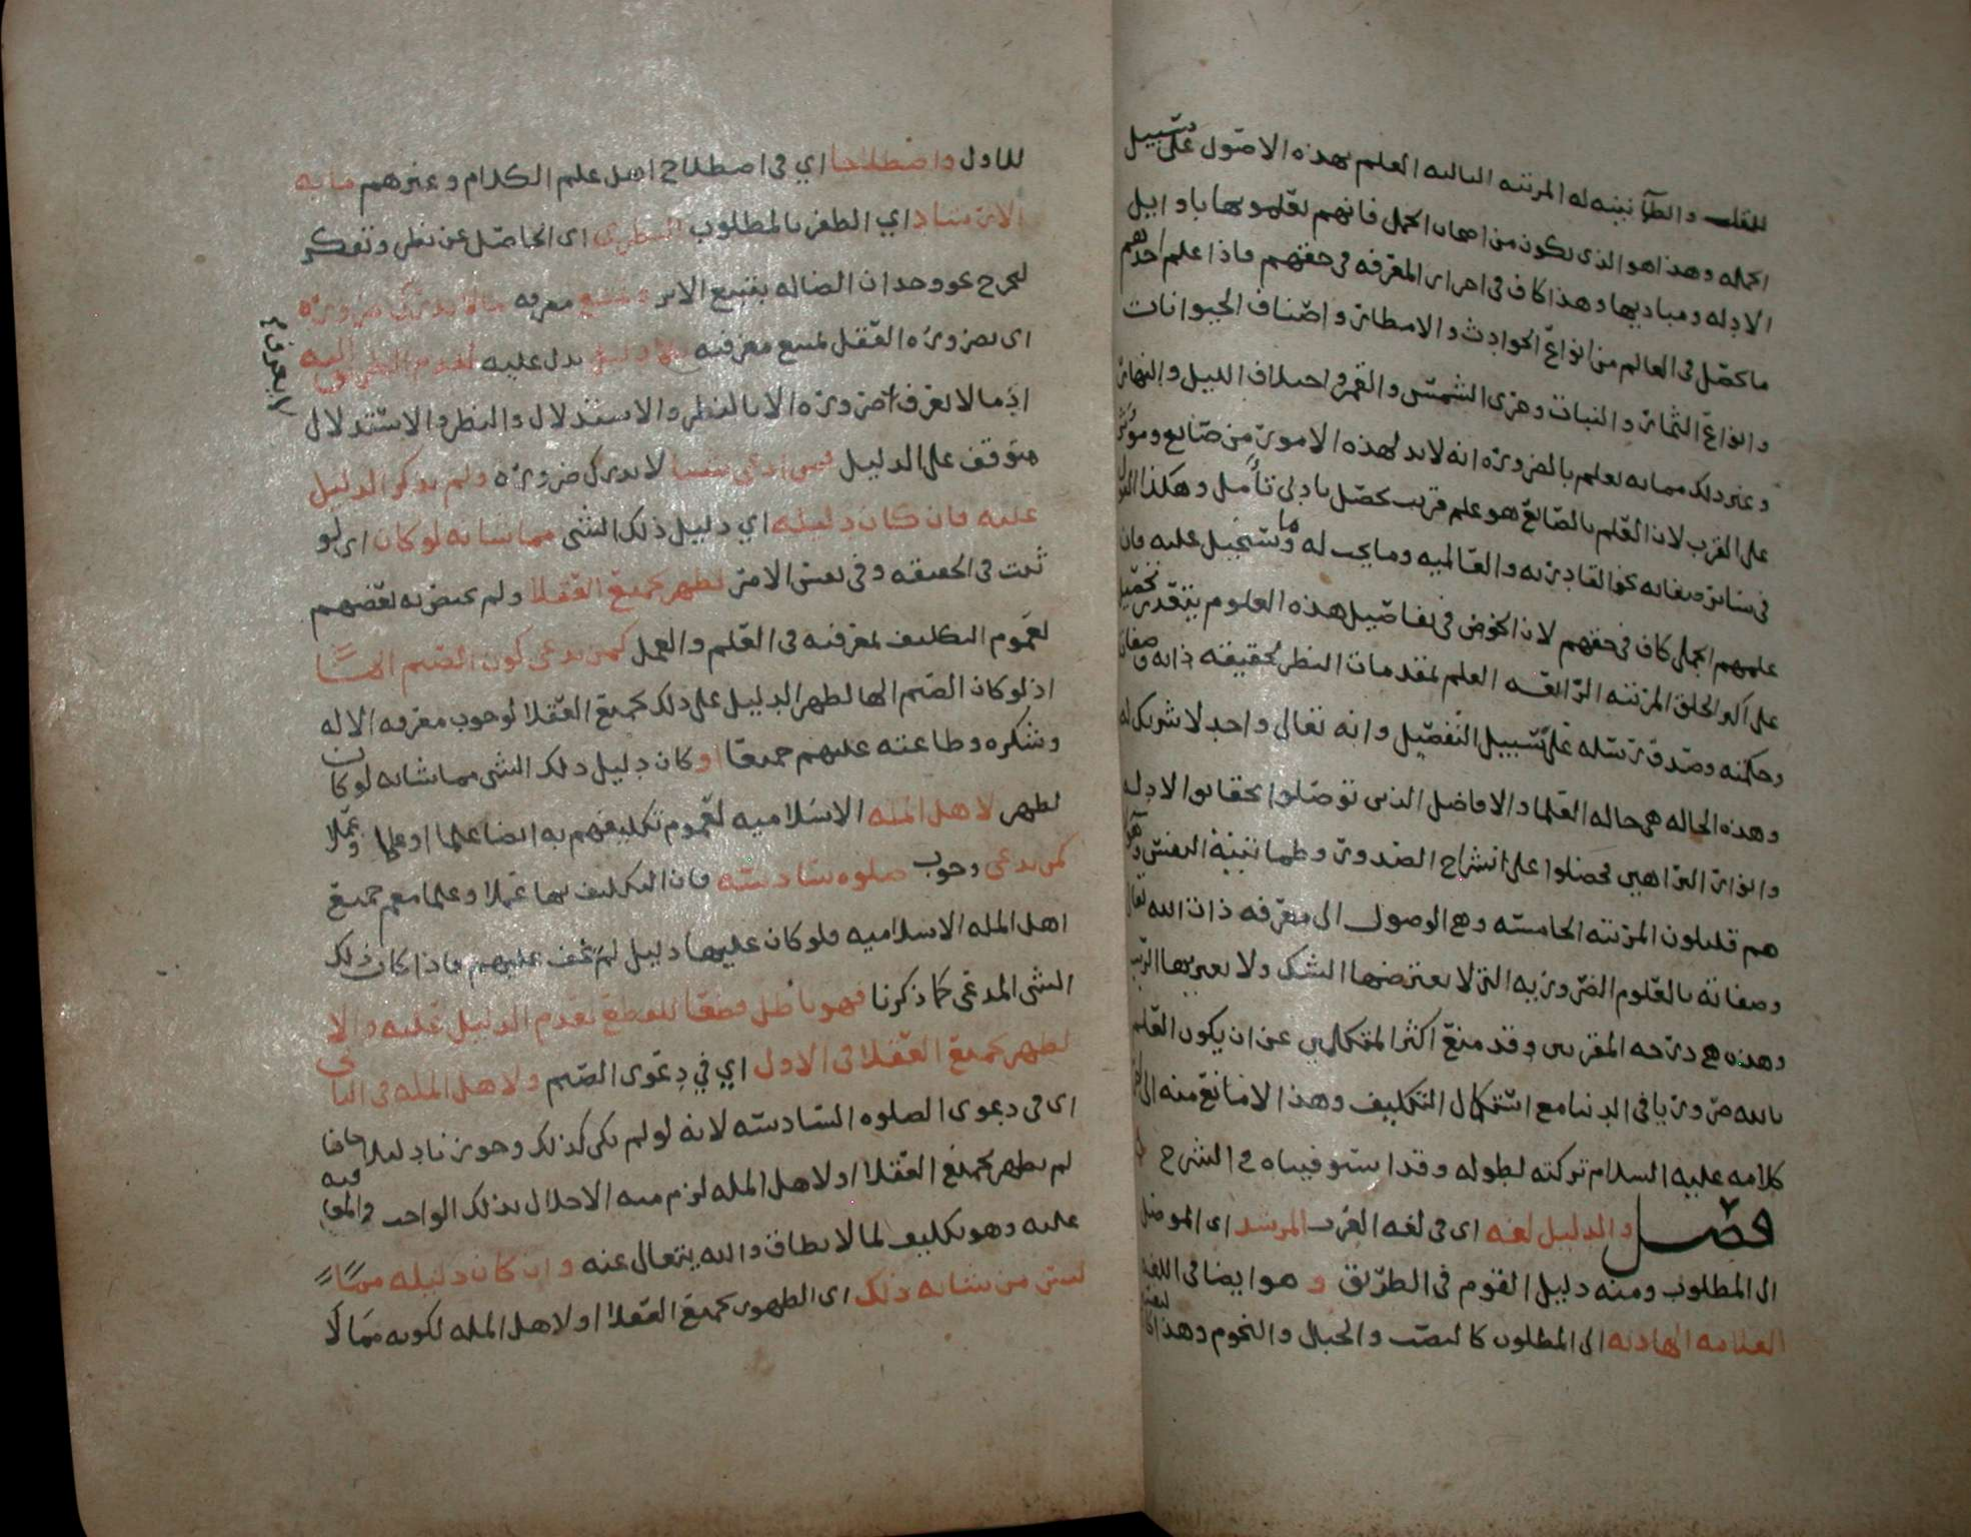 للقلب والطمأنينه له المرتبه الثالثه العلم بهذه الاصول على سبيل
الجمله وهذا هو الذي يكون من اصحاب الجمل فانهم تعلموها باوايل
الادله ومباديها وهذا كاف في اجزاء المعرفه في حقهم فاذا علم احدهم
ما يحصل في العالم من انواع الحوادث والامطار واصناف الحيوانات
وانواع الثمار والنبات وجري الشمس والقمر واختلاف الليل والنهار
وغير ذلك مما يعلم بالضروره انه لابد لهذه الامور من صانع ومؤثر
على القرب لان العلم بالصانع هو علم قريب يحصل بادنى تأمل وهكذا القول
في سائر صفاته نحو القادريه والعالميه وما يجب له وما يستحيل عليه فان
علمهم الجملي كاف في حقهم لان الخوض في تفاصيل هذه العلوم يتعذر تحصيله
على اكثر الخلق المرتبه الرابعه العلم بمقدمات النظر بحقيقه ذاته وصفاته
وحكمته وصدق رسله على سبيل التفصيل وانه تعالى واحد لا شريك له
وهذه الحاله هي حاله العلماء الافاضل الذين توصلوا بحقايق الادله
وانوار البراهين فحصلوا على انشراح الصدور وطمانينة النفس
هم قليلون المرتبه الخامسه وهي الوصول الى معرفه ذات الله تعالى
وصفاته بالعلوم الضروريه التي لا يعترضها الشك ولا يعتريها الريب
وهذه هي درجه المقربين وقد منع اكثر المتكلمين عن ان يكون العلم
بالله ضروريا في الدنيا مع استكمال التكليف وهذا لا مانع منه الى اخر
كلامه عليه السلام تركته لطوله وقد استوفيناه في الشرح
فصل والدليل لغه اي في لغه العرب المرشد اي الموصل
الى المطلوب ومنه دليل القوم في الطريق و هو ايضا في اللغه
العلامه الهاديه الى المطلوب كالنصب والجبال والنجوم وهذا
للاول واصطلاحا اي في اصطلاح اهل علم الكلام وغيرهم ما به
الارشاد اي الظفر بالمطلوب النظري اي الحاصل عن نظر وتفكر
ليخرج نحو وجدان الضاله بتتبع الاثر ويمتنع معرفه ما لا يدرك ضروره
اي بضروره العقل يمتنع معرفته بلا دليل يدل عليه لعدم الطريق اليه
اذ ما لا يعرف ضروره الا بالنظر والاستدلال والنظر والاستدلال
لا يعرف
متوقف على الدليل فمن ادعى شيئا لا يدرك ضروره ولم يذكر الدليل
عليه فان كان دليله اي دليل ذلك الشي مما شانه لو كان اي لو
ثبت في الحقيقه وفي نفس الامر لظهر لجميع العقلا ولم يختص به بعضهم
لعموم التكليف بمعرفته في العلم والعمل كمن يدعي كون الصنم الها
اذ لو كان الصنم الها لظهر الدليل على ذلك لجميع العقلا لوجوب معرفه الاله
وشكره وطاعته عليهم جميعا او كان دليل ذلك الشي مما شانه لو كان
لظهر لاهل المله الاسلاميه لعموم تكليفهم به ايضا علما او علما وعملا
كمن يدعي وجوب صلوه سادسه فان التكليف بها عملا وعلما مع جميع
اهل المله الاسلاميه فلو كان عليها دليل لم يخف عليهم فاذا كان ذلك
الشي المدعى كما ذكرنا فهو باطل قطعا للقطع بعدم الدليل عليه والا
لظهر لجميع العقلا في الاول اي في دعوى الصنم ولاهل المله في الثاني
اي في دعوى الصلوه السادسه لانه لو لم يكن كذلك وجوزنا دليلا خافيا
لم يظهر لجميع العقلا او لاهل المله لزم منه الاخلال بذلك الواجب
عليه وهو تكليف لما لا يطاق والله يتعالى عنه وان كان دليله مما
ليس من شانه ذلك اي الظهور لجميع العقلا او لاهل المله لكونه مما لا